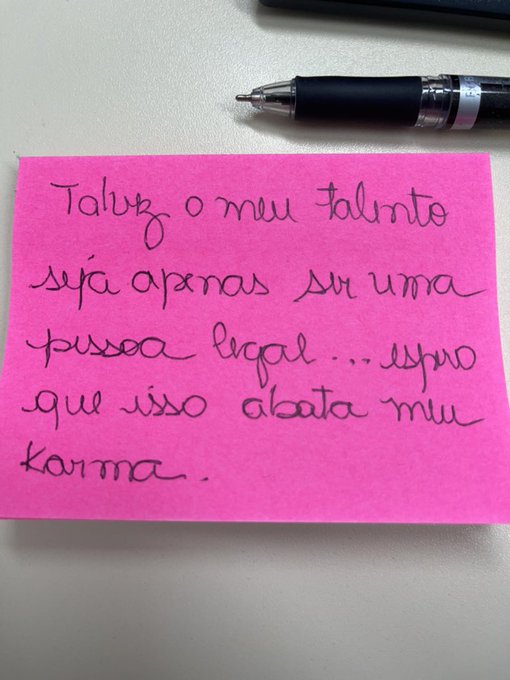 Talvez o meu talento
seja apenas ser uma
pessoa legal... espero
que isso abata meu
karma.